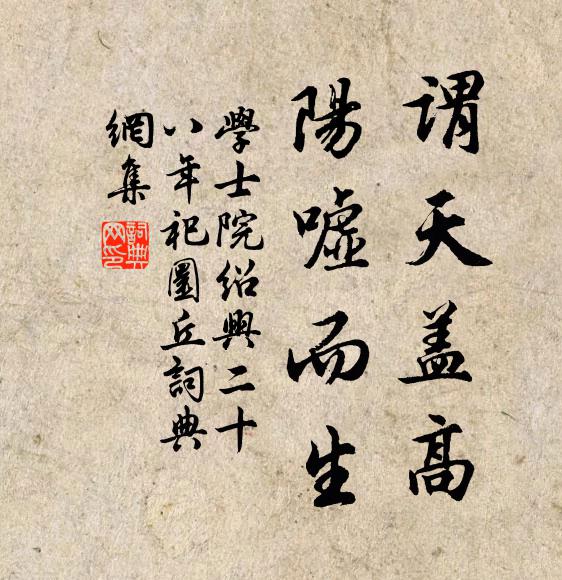 謂天盖高
陽噓而生
學士院紹興二十
八年祀圜丘詞典
網集
詞典
网印